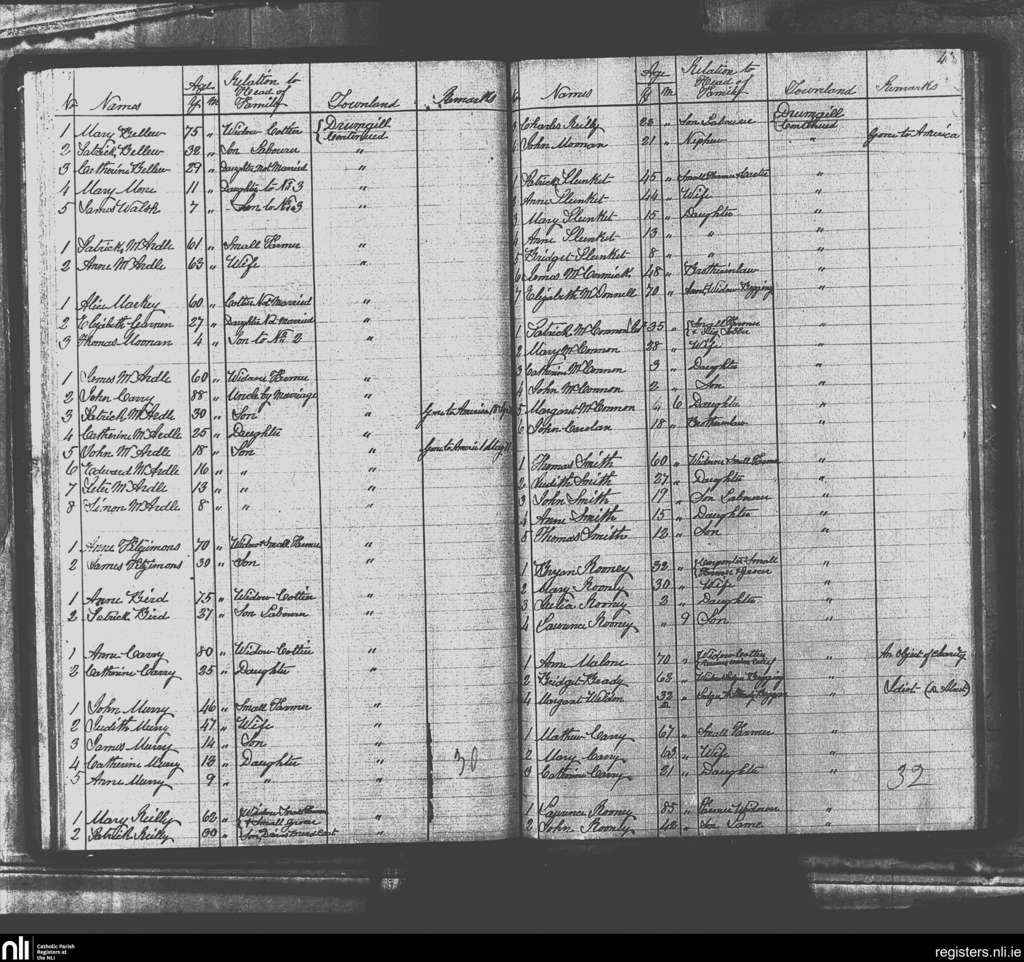 No. Names Age Y M Relation to Head of Family Townland Remarks
1 Mary Bellew 75 " Widow Cottier Drumgill Continued
2 Patrick Bellew 32 " Son Labourer "
3 Catherine Bellew 29 " Daughter Not Married
4 Mary More 11 " Daughter to No. 3 "
5 James Walsh 7 " Son to No. 3 "
1 Patrick McArdle 61 " Small Farmer "
2 Anne McArdle 63 " Wife "
1 Alice Markey 60 " Cottier Not Married "
2 Elizabeth 27 " Daughter Not Married "
3 Thomas Moonan 4 " Son to No. 2 "
1 James McArdle 60 " Widower Farmer "
2 John Carry 88 " Uncle by Marriage "
3 Patrick McArdle 30 " Son " Gone to America
4 Catherine McArdle 25 " Daughter "
5 John McArdle 18 " Son " Gone to
6 Edward McArdle 16 " " "
7 Peter McArdle 13 " " "
8 Simon McArdle 8 " " "
1 Anne Fitzsimons 70 " Widow & Small Farmer "
2 James Fitzsimons 30 " Son "
1 Anne Bird 75 " Widow Cottier "
2 Patrick Bird 37 " Son Labourer "
1 Anne Carry 80 " Widow Cottier "
2 Catherine Carry 35 " Daughter "
1 John Murry 46 " Small Farmer "
2 Judith Murry 47 " Wife "
3 James Murry 14 " Son "
4 Catherine Murry 12 " Daughter "
5 Anne Murry 9 " " "
30
1 Mary Reilly 62 " Widow Small Farmer & Small Grocer "
2 Patrick Reilly 30 " Son "
43
No. Names Age Y M Relation to Head of Family Townland Remarks
3 Charles Reilly 23 " Son Labourer Drumgill Continued
4 John Moonan 21 " Nephew Gone to America
1 Patrick Plunket 45 " Small Farmer & "
2 Anne Plunket 44 " Wife "
3 Mary Plunket 15 " Daughter "
4 Anne Plunket 13 " " "
5 Bridget Plunket 8 " " "
6 James McCormick 48 " Brotherinlaw "
7 Elizabeth McDonnell 70 " Aunt, Widow Begging "
1 Patrick McConnon 35 " Small Farmer & Pig Jobber "
2 Mary McConnon 28 " Wife "
3 Catherine McConnon 3 " Daughter "
4 John McConnon 2 " Son "
5 Margaret McConnon " 6 Daughter "
6 John Carolan 18 " Brotherinlaw "
1 Thomas Smith 60 " Widower Small Farmer "
2 Judith Smith 27 " Daughter "
3 John Smith 19 " Son Labourer "
4 Anne Smith 15 " Daughter "
5 Thomas Smith 12 " Son "
1 Bryan Rooney 32 " Carpenter Small Farmer & Grocer "
2 Mary Rooney 30 " Wife "
3 Julia Rooney 3 " Daughter "
4 Laurence Rooney " 9 Son "
1 Anne Malone 70 " Widow Cottier " An Object of Charity
2 Bridget Brady 63 " Widow Lodger Begging "
4 Margaret Weldon 32 " Lodger Begger " Idiot
1 Mathew Carry 67 " Small Farmer "
2 Mary Carry 63 " Wife "
3 Catherine Carry 21 " Daughter "
32
1 Laurence Rooney 85 " Farmer Widower "
2 John Rooney 42 " Son Same "
nli Catholic Parish
Registers at
the NLI
registers.nli.ie